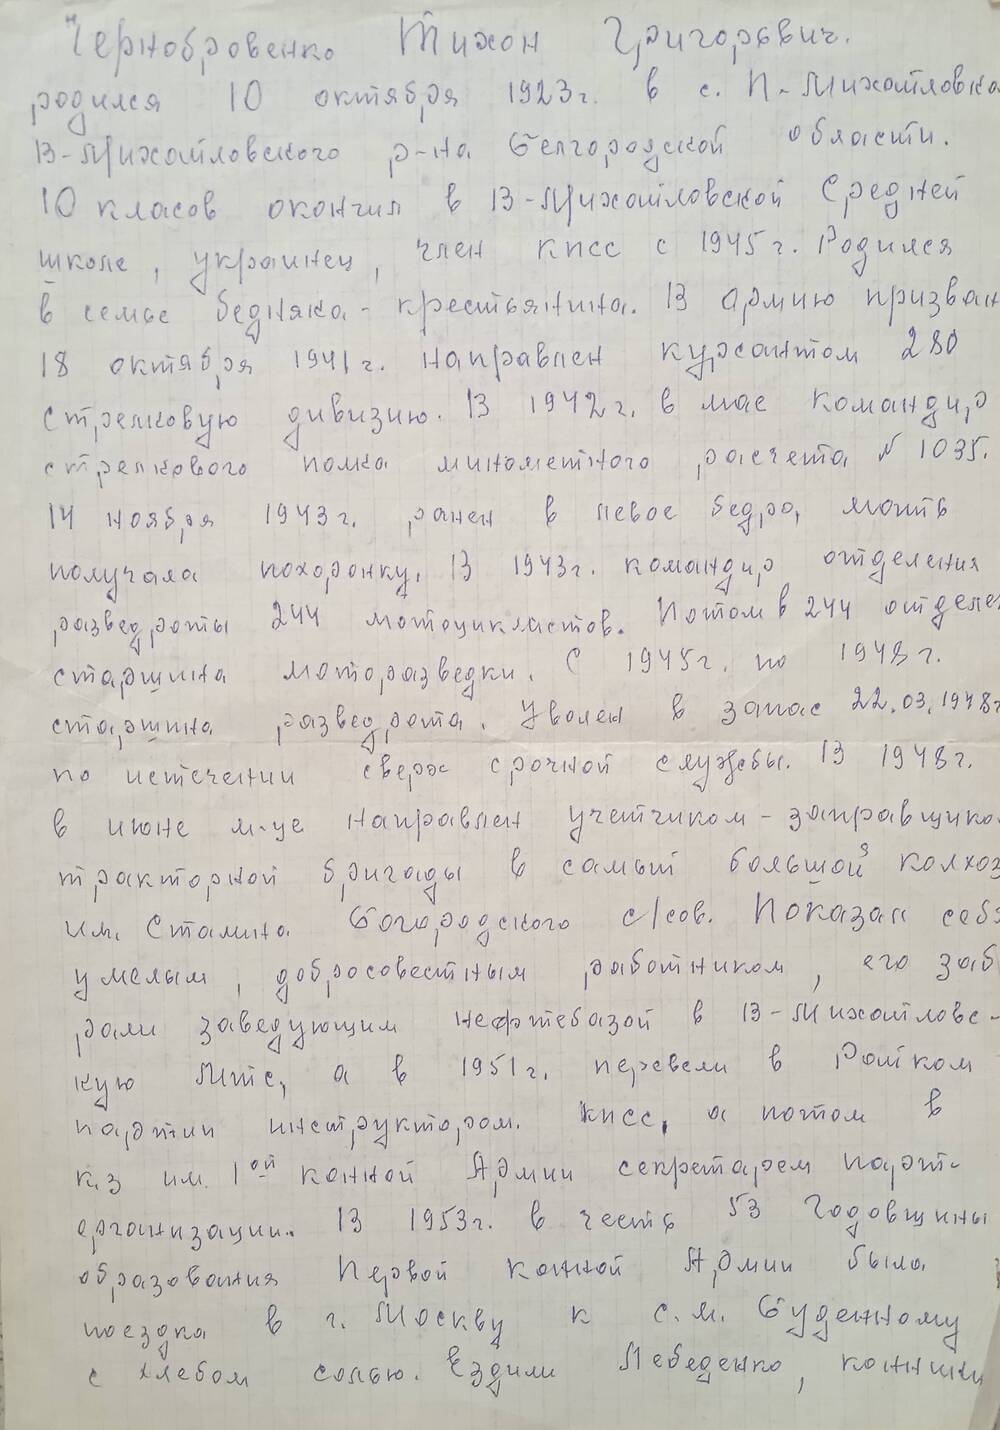 Чернобровенко Тихон Григорьевич.
родился 10 октября 1923г. в с. П-Михайловка
В-Михайловского р-на Белгородской области.
10 класов окончил в В-Михайловской Средней
школе, украинец, член КПСС с 1945г. Родился
в семье бедняка-крестьянина. В армию призван
18 октября 1941г. направлен курсантом 280
стрелковую дивизию. В 1942г. в мае командир
стрелкового полка минометного расчета № 1035.
14 ноября 1943г. ранен в левое бедро, мать
получала похоронку. В 1943г. командир отделения
развед роты 244 мотоциклистов. Потом в 244 отделен
старшина моторазведки. С 1945г. по 1948г.
старшина разведрота. Уволен в запас 22.03.1948г
по истечении сверх срочной службы. В 1948г.
в июне м-це направлен учетчиком-заправщиком
тракторной бригады в самый большой колхоз
им. Сталина Богородского с/сов. Показал себя
умелым, добросовестным работником, его заб
рали заведующим нефтебазой в В-Михайловс-
кую Мтс, а в 1951г. перевели в Райком
партии инструктором. КПСС, а потом в
к-з им. 1ой конной Армии секретарем парт-
организации. В 1953г. в честь 53 Годовщины
образования Первой конной Армии была
поездка в г. Москву к С.М. Буденному
с хлебом солью. Ездили Лебеденко, конники